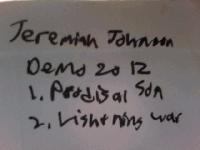 Jeremiah Johnson
Demo 2012
1. Prodigal Son
2. Lightning war